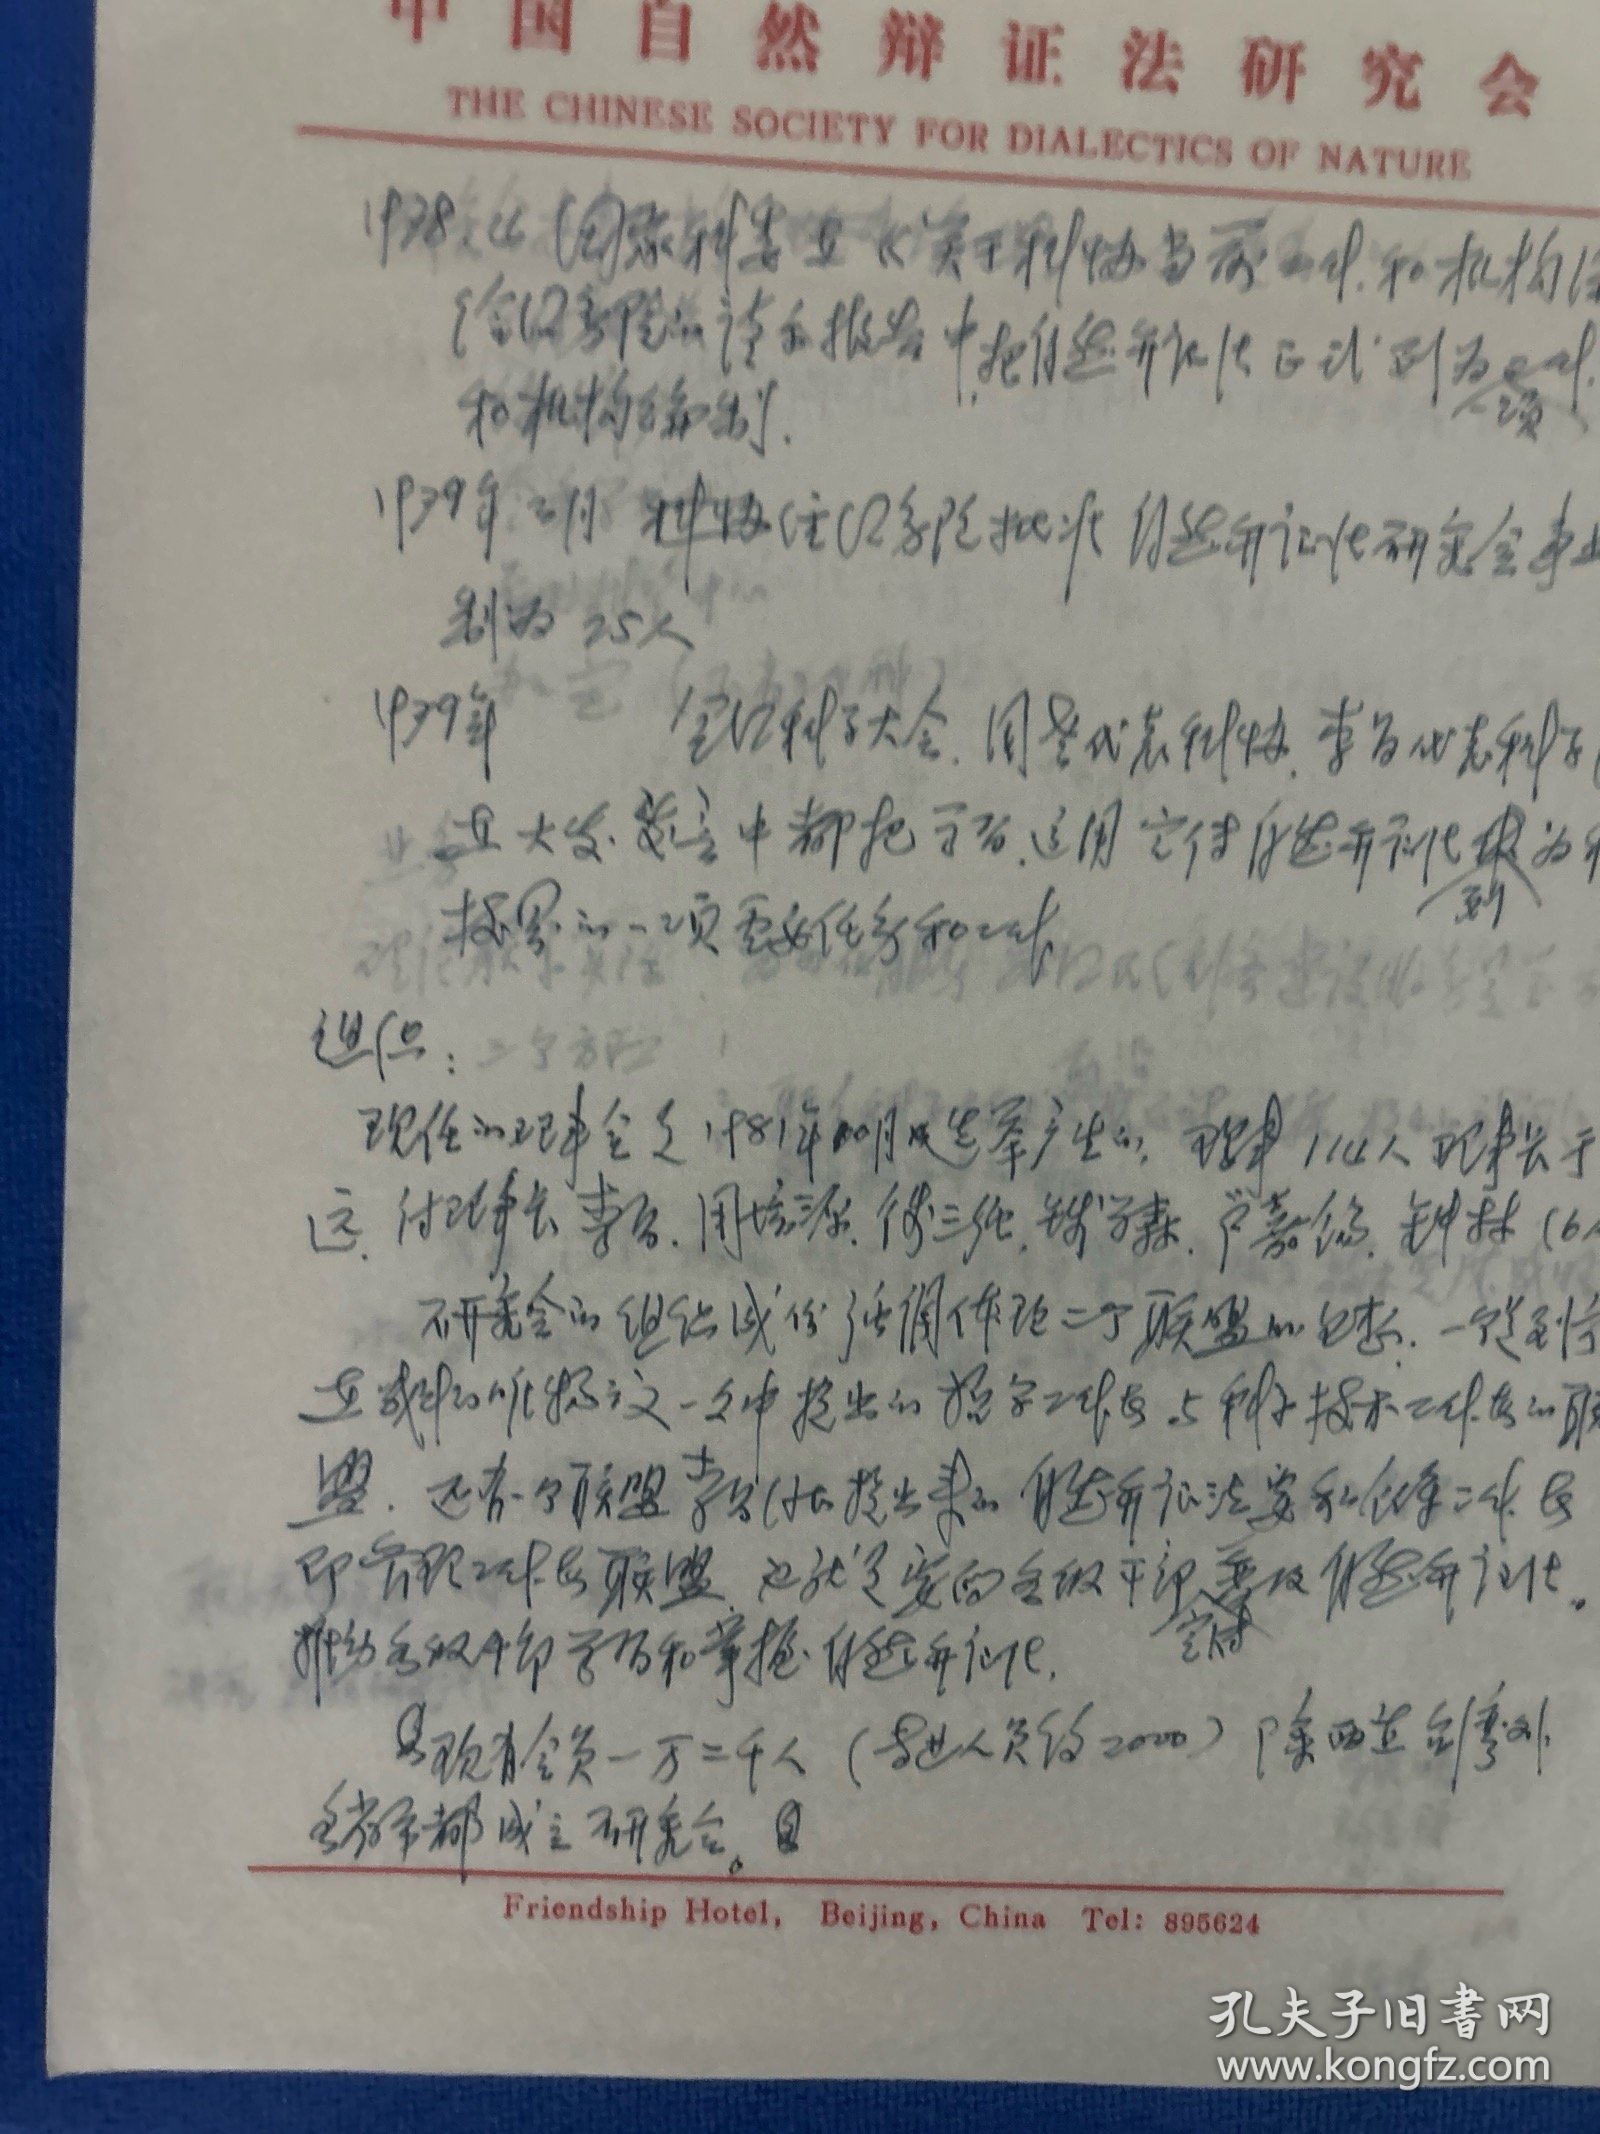 中国自然辩证法研究会
THE CHINESE SOCIETY FOR DIALECTICS OF NATURE
1978年 国家科委在《关于科协当前工作和机构
给国务院的请示报告中,把自然辩证法正式列为工作
一项
和机构编制.
1979年 月 科协 国务院批准 自然辩证法研究会事业
制为 25人
1979年 全国科学大会.周 代表科协.李昌代表科学
在大会发言中都把学习.运用宣传自然辩证法 为
列
技界的一项重要任务和工作
组织:
现任的理事会是1981年10月 选举产生的,理事114人 理事长于
远.付理事长李昌.周培源.钱三强.钱学森.卢嘉锡.钟林(6人
研究会的组织成份 体现二个联盟的思想.一是列宁
在战斗的唯物主义一文中提出的哲学工作者与科学技术工作者的联
盟.还有一个联盟李昌 提出来的 自然辩证法要和 工作者
即管理工作者联盟.也就是要向各级干部普及自然辩证法。
宣传
推动各级干部学习和掌握自然辩证法.
现有会员一万二千人(专业人员约2000)除西藏台湾外
各省市都成立研究会。
Friendship Hotel, Beijing, China Tel: 895624
孔夫子旧书网
www.kongfz.com